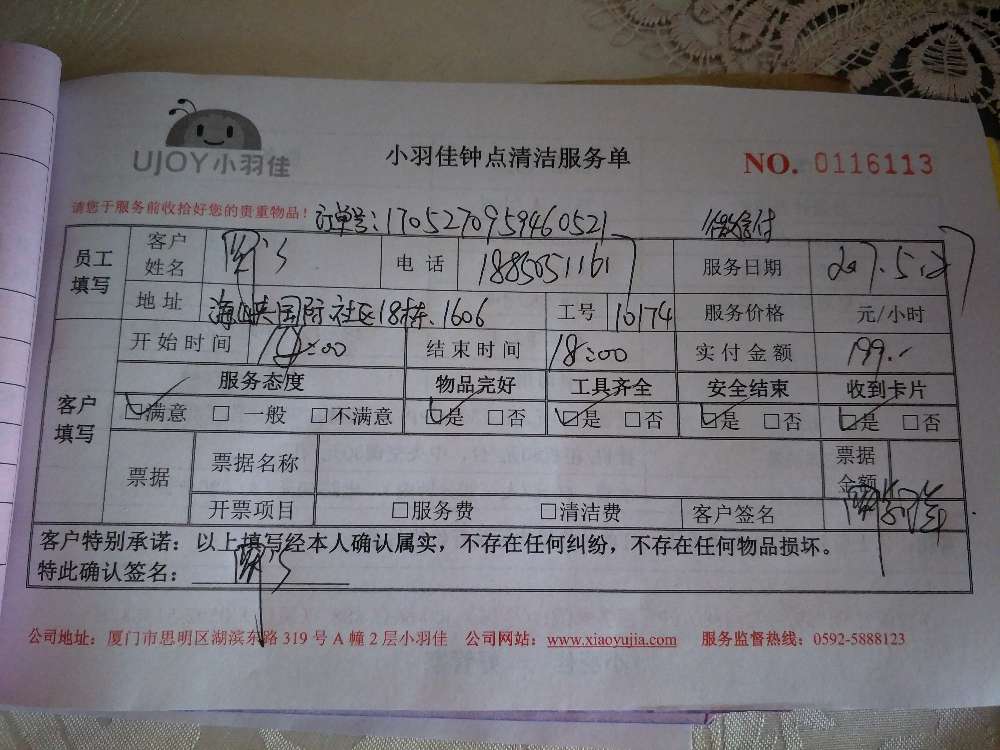 UJOY小羽佳
小羽佳钟点清洁服务单
NO. 0116113
请您于服务前收拾好您的贵重物品！
订单号：1705270959460521 微信付
员工填写
客户姓名 电话 服务日期
地址 海峡国际社区18栋.1606 工号 10174 服务价格 元/小时
客户填写
开始时间 14:00 结束时间 18:00 实付金额 199.-
服务态度 物品完好 工具齐全 安全结束 收到卡片
☑满意 □ 一般 □不满意 ☑是 □否 ☑是 □否 ☑是 □否 ☑是 □否
票据 票据名称 票据金额
开票项目 □服务费 □清洁费 客户签名
客户特别承诺：以上填写经本人确认属实，不存在任何纠纷，不存在任何物品损坏。
特此确认签名：
公司地址：厦门市思明区湖滨东路 319 号 A 幢 2 层小羽佳 公司网站：www.xiaoyujia.com 服务监督热线：0592-5888123